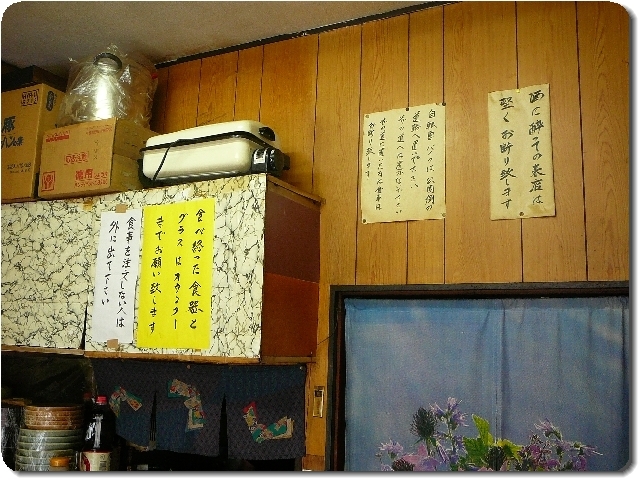 酒に酔っての来店は
堅くお断り致します
自転車、バイクは公園側の
道路へ置いて下さい
の道へは置かないで下さい
の道に置いた方は食事を
お断り致します
食べ終った食器と
グラスはカウンター
までお願い致します
食事を注文しない人は
外に出て下さい
豚